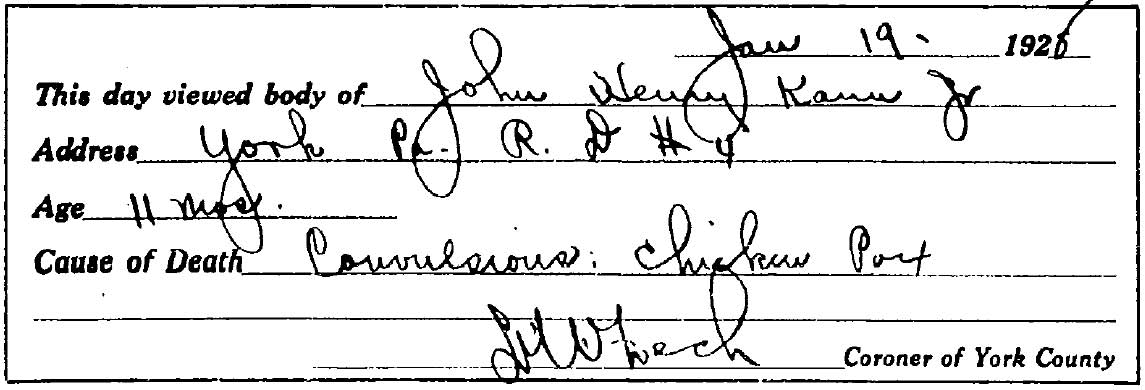 Jan 19 - 1926
This day viewed body of John Henry Kann Jr
Address York Pa. R. D # 4
Age 11 mos.
Cause of Death Convulsions: Chicken Pox
Zech Coroner of York County